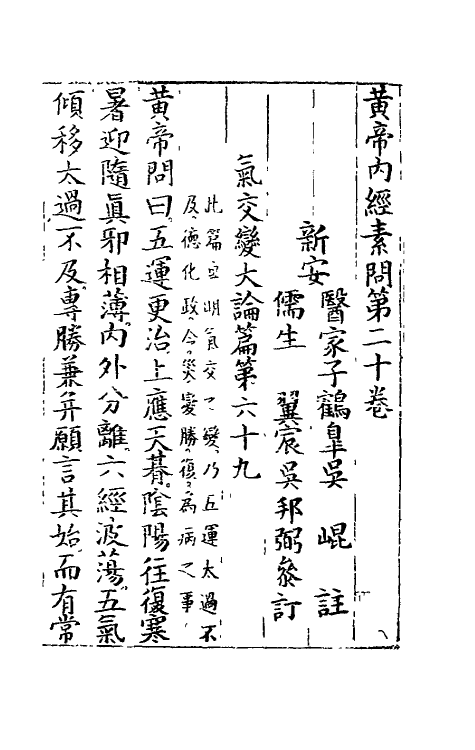 黃帝內經素問第二十卷
新安
醫家子鶴皐吳　崐　註
儒生　翼宸吳邦弼叅訂
氣交變大論篇第六十九
此篇宣明氣交之變乃五運太過不
及德化政令災變勝復為病之事
黃帝問曰五運更治上應天朞陰陽往復寒
暑迎隨眞邪相薄內外分離六經波蕩五氣
傾移太過不及專勝兼幷願言其始而有常